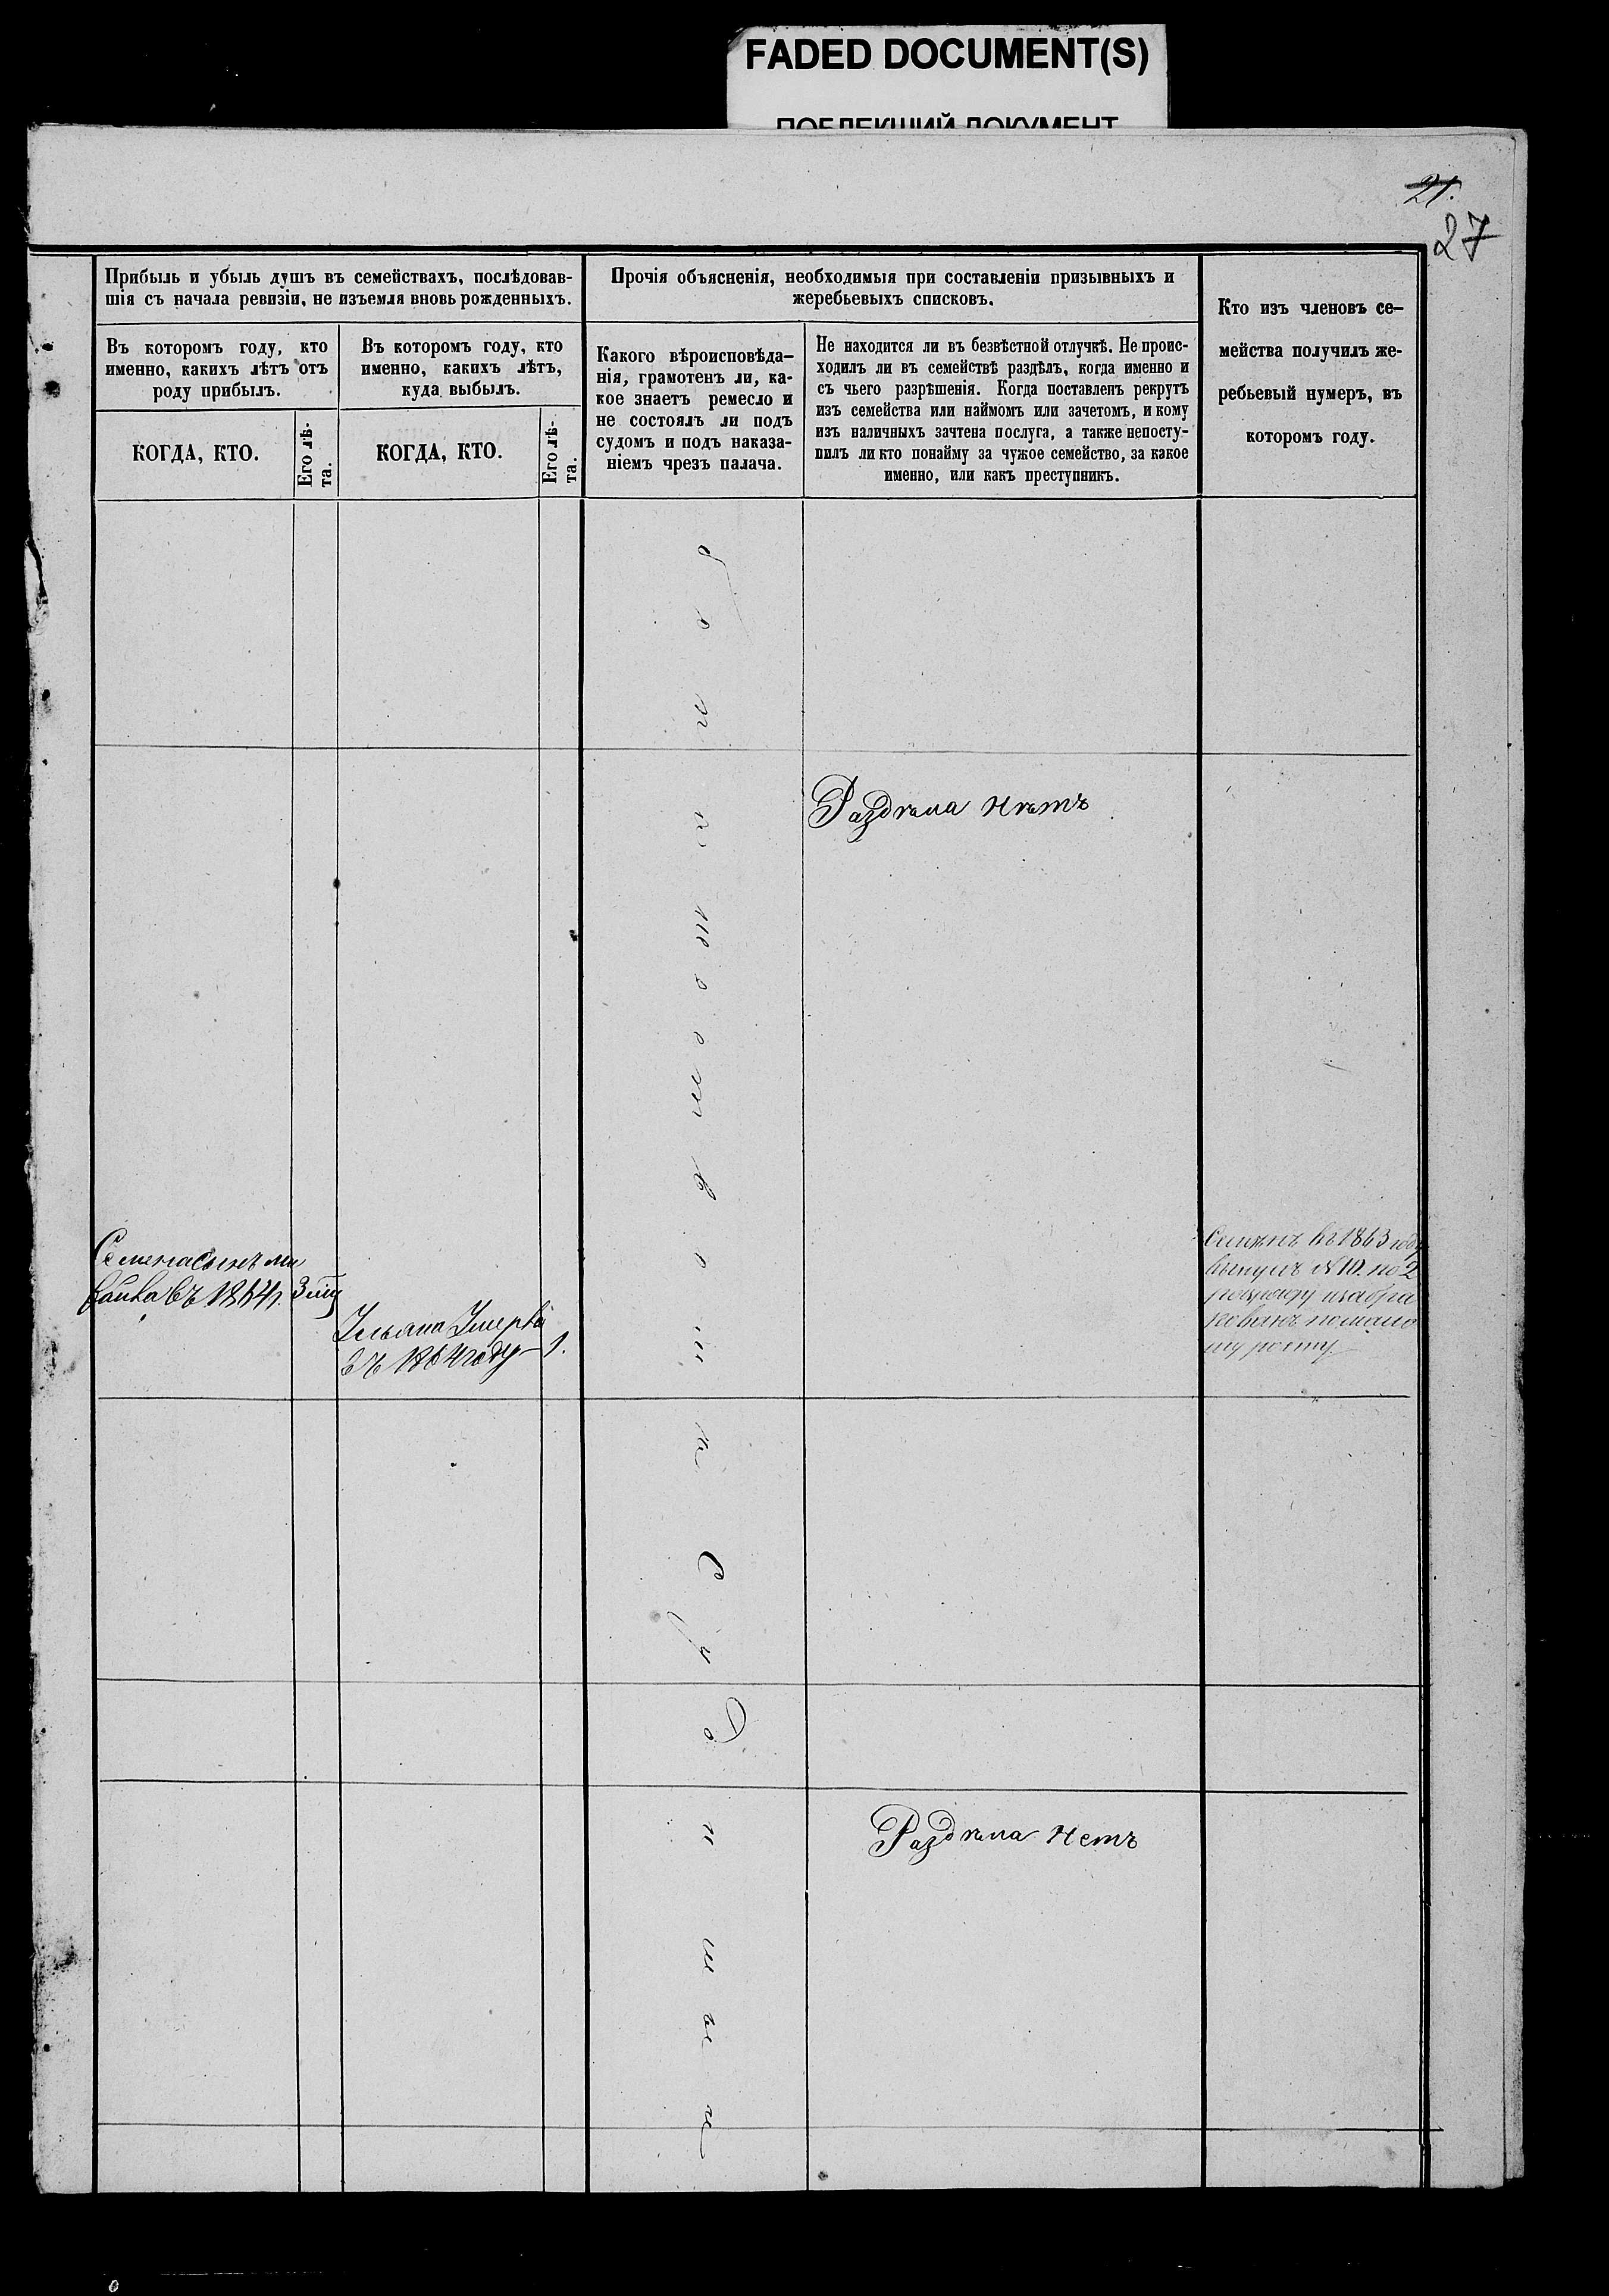 FADED DOCUMENT(S)
ПОБЛЕКШИЙ ДОКУМЕНТ
21.
27
Прибыль и убыль душъ въ семействахъ, послѣдовав-
шія съ начала ревизіи, не изъемля вновь рожденныхъ.
Въ которомъ году, кто
именно, какихъ лѣтъ отъ
роду прибылъ.
КОГДА, КТО.
Его лѣ-
та.
Въ которомъ году, кто
именно, какихъ лѣтъ,
куда выбылъ.
КОГДА, КТО.
Его лѣ-
та.
Прочія объясненія, необходимыя при составленіи призывныхъ и
жеребьевыхъ списковъ.
Какого вѣроисповѣда-
нія, грамотенъ ли, ка-
кое знаетъ ремесло и
не состоялъ ли подъ
судомъ и подъ наказа-
ніемъ чрезъ палача.
Не находится ли въ безвѣстной отлучкѣ. Не проис-
ходилъ ли въ семействѣ раздѣлъ, когда именно и
съ чьего разрѣшенія. Когда поставленъ рекрутъ
изъ семейства или наймомъ или зачетомъ, и кому
изъ наличныхъ зачтена послуга, а также непосту-
пилъ ли кто понайму за чужое семейство, за какое
именно, или какъ преступникъ.
Кто изъ членовъ се-
мейства получилъ же-
ребьевый нумеръ, въ
которомъ году.
Раздѣла нѣтъ
Семена сынъ Ми
въ 1864
Ульяна
въ 1864 году 1.
въ 1863 году
вынулъ №10. по 2
ковано по мало
му росту
Раздѣла нетъ